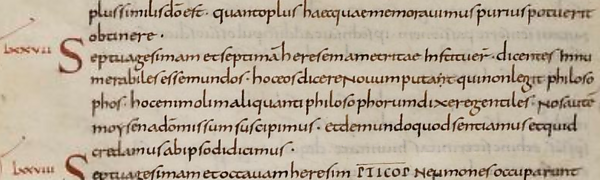 plussimilisdōest · quantoplus haecquaememoravimus puriuspotuerit
obtinere ·
lxxvii Septuagesimam etseptimāheresem ametritae Instituer̄ · dicentes Innu
merabilesessemundos · hoceosdicereNovumputant quinonlegit philoso
phos · hocenimolimaliquantiphilosophorumdixeregentiles · Nosautē
moysenadōmissumsuscipimus · etdemundoquodsentiamusetquid
credamusabipsodidicimus ·
lxxviii Septuagesimam etoctavamheresim PTICOP Neumones occuparunt